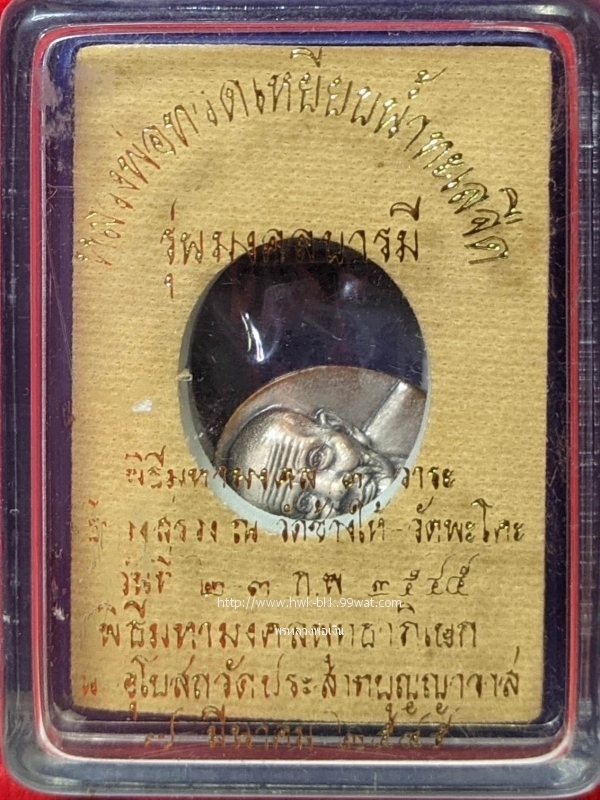 หลวงพ่อทวดเหยียบน้ำทะเลจืด
รุ่นมงคลบารมี
พิธีมหามงคล ๓ วาระ
บวงสรวง ณ วัดช้างให้ - วัดพะโคะ
วันที่ ๒-๓ ก.พ. ๒๕๔๕
http://www.hwk-bkk.99wat.com/
พิธีมหามงคลพุทธาภิเษก
ณ อุโบสถวัดประสาทบุญญาวาส
๗ มีนาคม ๒๕๔๕